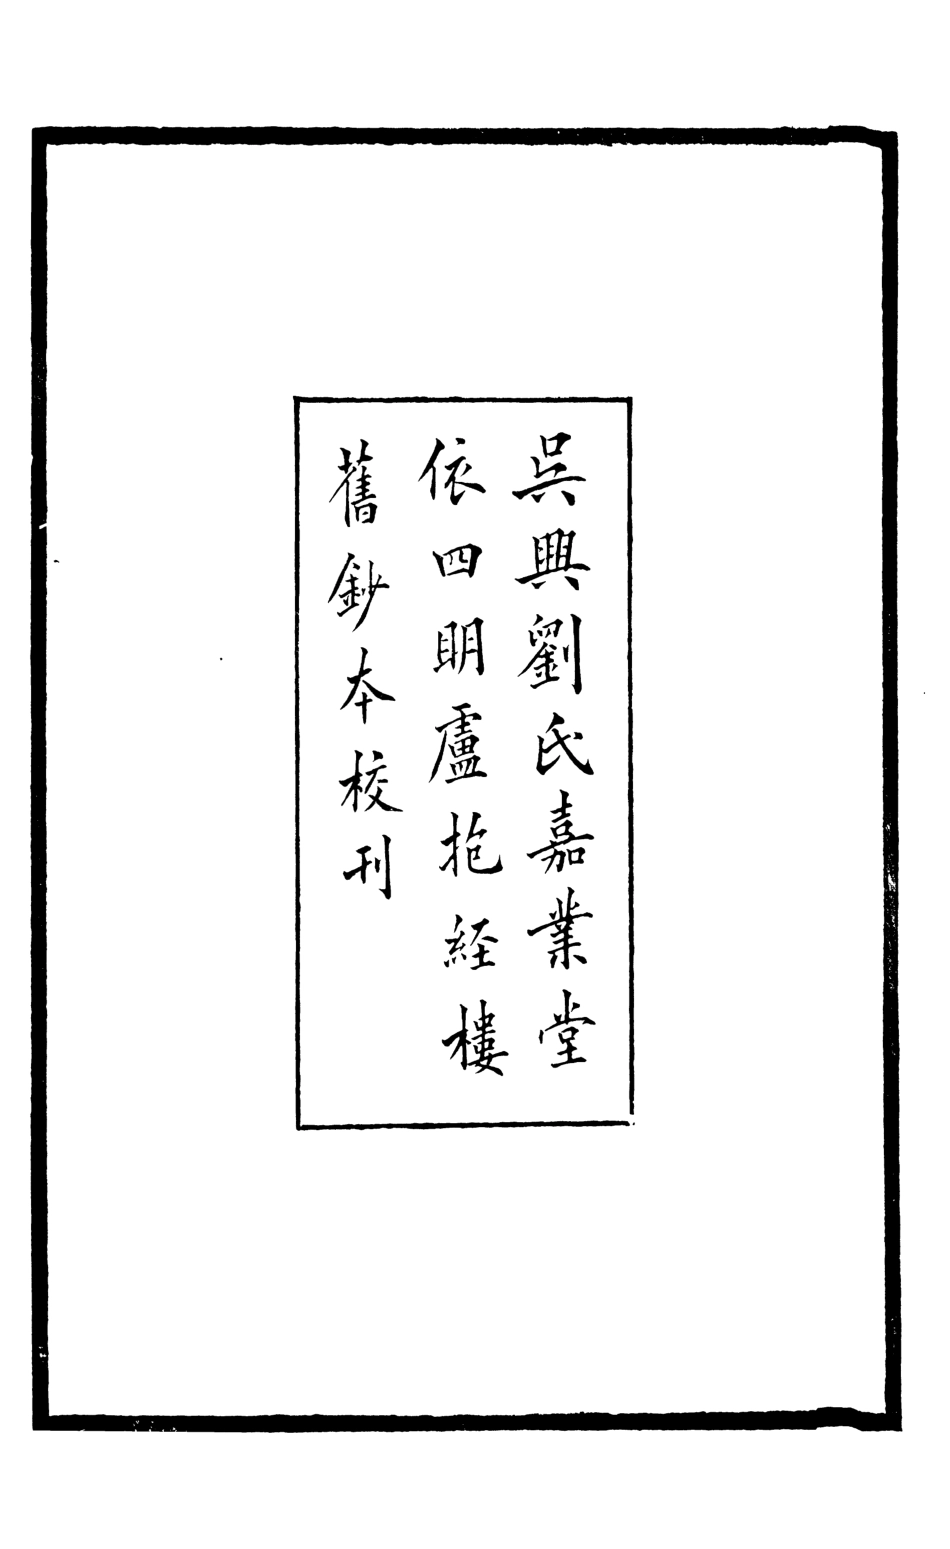 吳興劉氏嘉業堂
依四明盧抱經樓
舊鈔本校刊